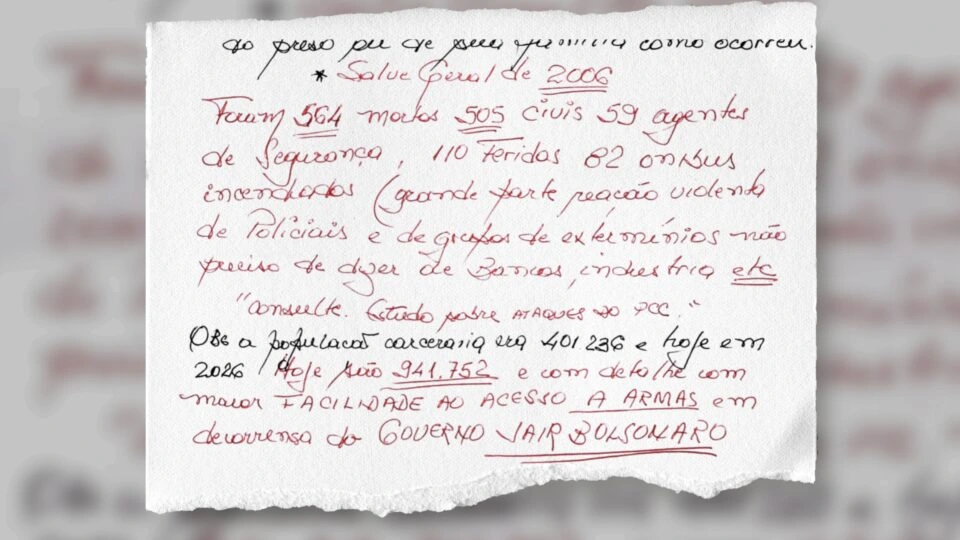 do preso ou de sua família como ocorreu.
* Salve Geral de 2006
Foram 564 mortos 505 civis 59 agentes
de Segurança, 110 feridos 82 onibus
incendiados (grande parte reação violenta
de Policiais e de grupos de extermínios não
preciso de dizer de Bancos, industria etc
"consulte. Estudo sobre ATAQUES DO PCC."
OBS a populacão carceraria era 401 236 e hoje em
2026 Hoje são 941.752 e com detalhe com
maior FACILIDADE AO ACESSO A ARMAS em
decorrensa do GOVERNO JAIR BOLSONARO